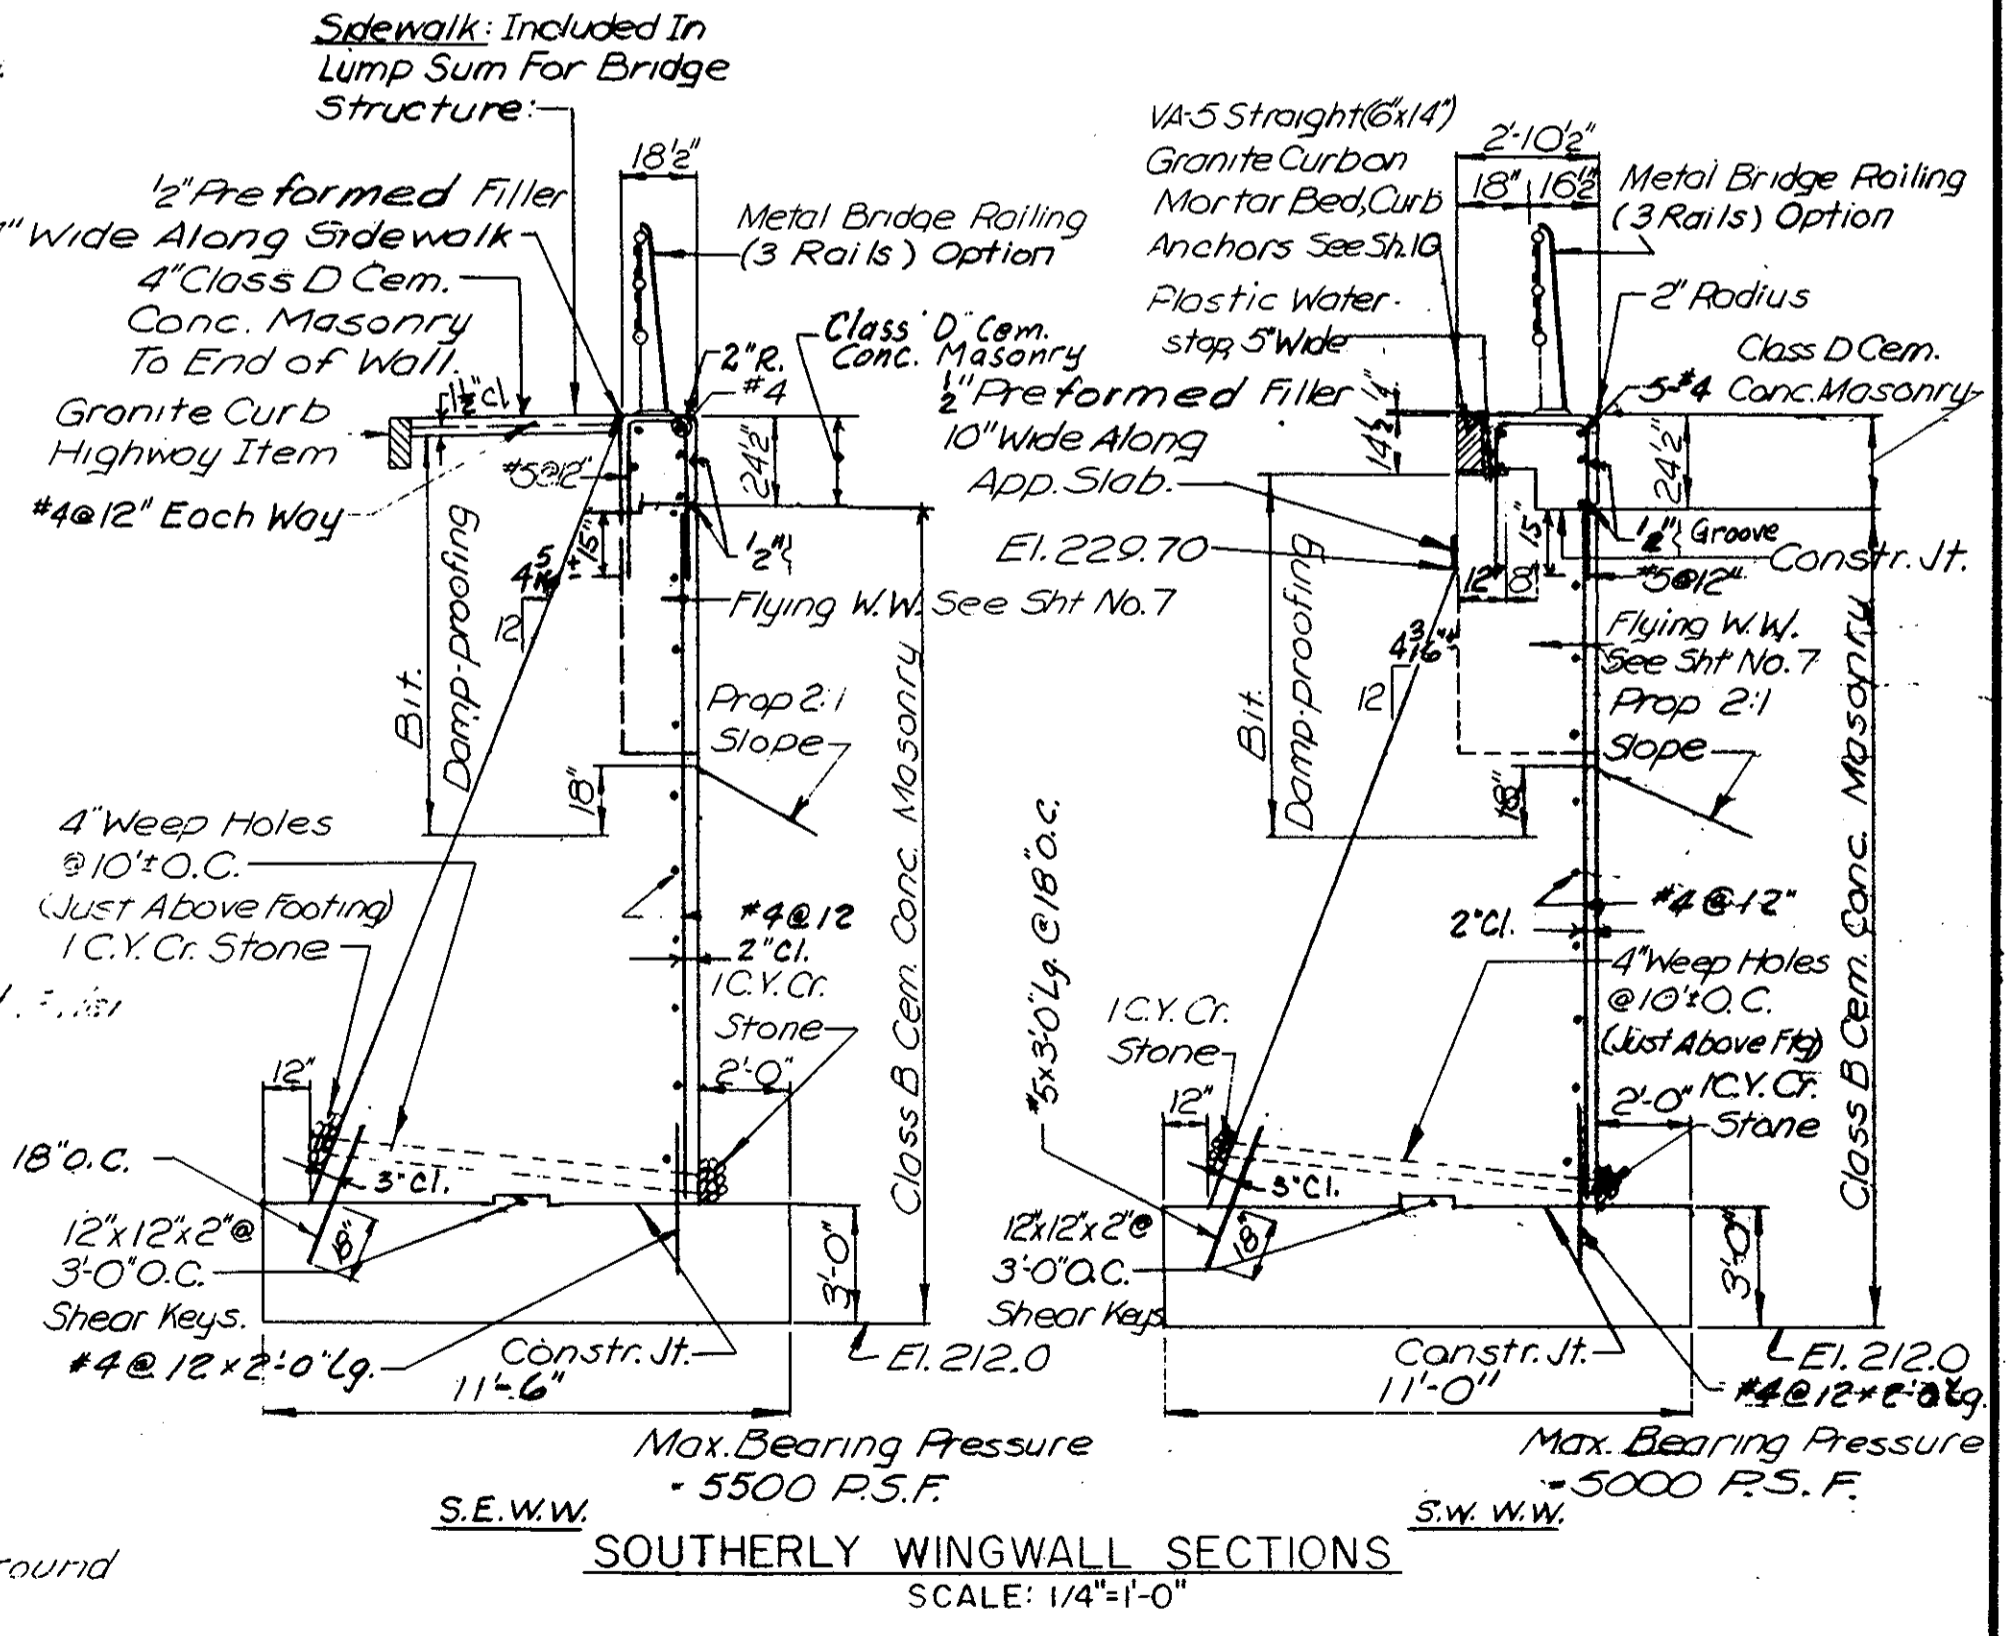 Sidewalk: Included In
Lump Sum For Bridge
Structure:
18½"
½" Preformed Filler
" Wide Along Sidewalk
4" Class D Cem.
Conc. Masonry
To End of Wall.
1½" Cl
Granite Curb
Highway Item
#4@12" Each Way
Metal Bridge Railing
(3 Rails) Option
Class "D" Cem.
Conc. Masonry
2" R.
#4
24½"
#5@12"
15"
½"
4 5/16"±
12
Flying W.W. See Sht No. 7
Bit.
Damp-proofing
Prop 2:1
Slope
18"
4" Weep Holes
@ 10'± O.C.
(Just Above Footing)
1 C.Y. Cr. Stone
#4@12
2" Cl.
1 C.Y. Cr.
Stone
Class B Cem. Conc. Masonry
12"
2'-0"
18" O.C.
3" Cl.
18"
12"x12"x2"@
3'-0" O.C.
Shear Keys.
#4 @ 12 x 2'-0" Lg.
Constr. Jt.
3'-0"
El. 212.0
11'-6"
Max. Bearing Pressure
- 5500 P.S.F.
S.E. W.W.
VA-5 Straight (6"x14")
Granite Curb on
Mortar Bed, Curb
Anchors See Sh. 10
Plastic Water-
stop, 5" Wide
½" Preformed Filler
10" Wide Along
App. Slab.
El. 229.70
2'-10½"
18"
16½"
Metal Bridge Railing
(3 Rails) Option
2" Radius
Class D Cem.
5-#4 Conc. Masonry
¼"
14½"
24½"
15"
½" Groove
Constr. Jt.
#5@12"
12"
8"
4 3/16"±
12
Flying W.W.
See Sht No. 7
Bit.
Damp-proofing
Prop 2:1
Slope
18"
#5x3'-0" Lg. @ 18" O.C.
#4 @ 12"
2" Cl.
4" Weep Holes
@ 10'± O.C.
(Just Above Ftg)
1 C.Y. Cr.
Stone
1 C.Y. Cr.
Stone
Class B Cem. Conc. Masonry
12"
2'-0"
3" Cl.
18"
12"x12"x2"@
3'-0" O.C.
Shear Keys
Constr. Jt.
3'-0"
El. 212.0
#4@12x2'-0" Lg.
11'-0"
Max. Bearing Pressure
- 5000 P.S.F.
S.W. W.W.
SOUTHERLY WINGWALL SECTIONS
SCALE: 1/4"=1'-0"
round